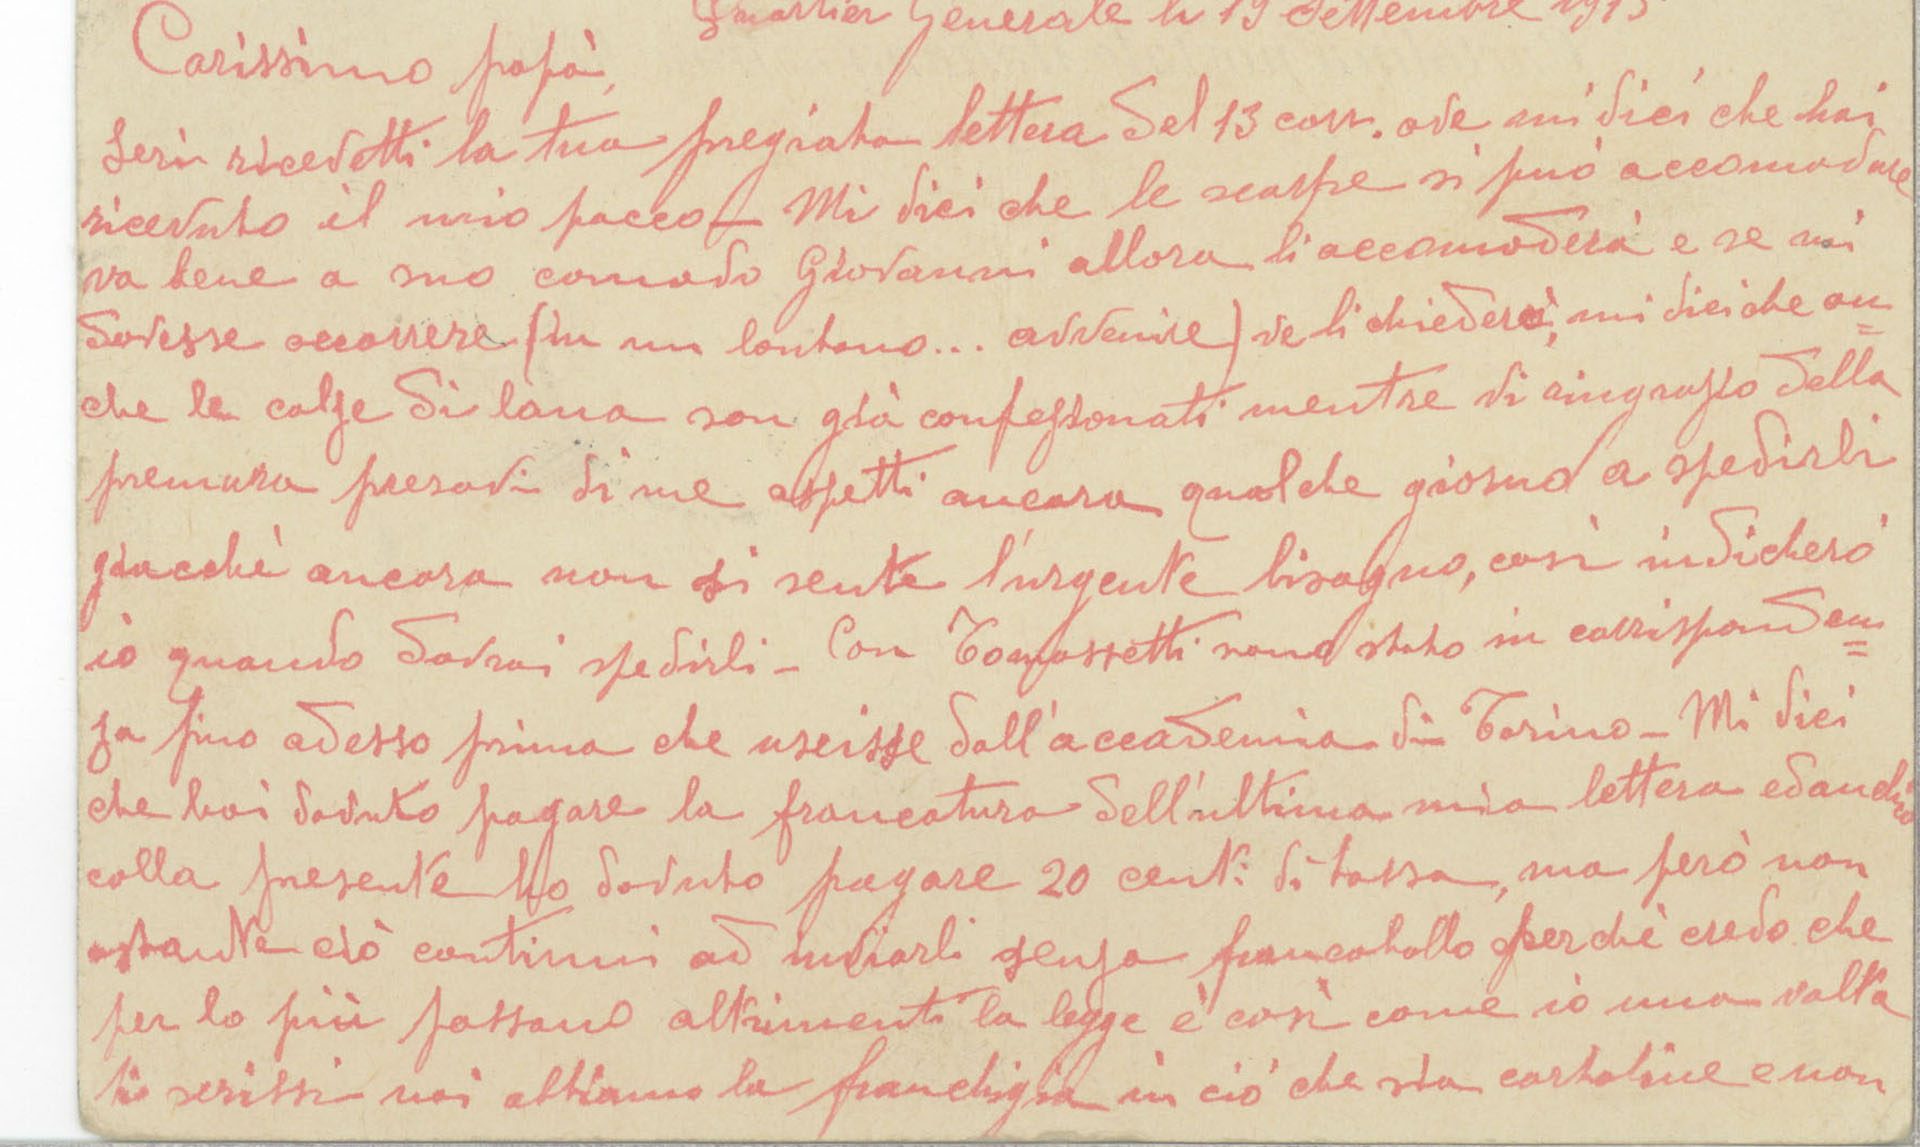 Quartier Generale li 19 Settembre 1915
Carissimo papà,
Ieri ricevetti la tua pregiata lettera del 13 corr. ove mi dici che hai
ricevuto il mio pacco – Mi dici che le scarpe si può accomodare
va bene a suo comodo Giovanni allora li accomoderà e se mi
dovesse occorrere (in un lontano... avvenire) ve li chiederò, mi dici che an=
che le calze di lana son già confezionati mentre vi ringrazio della
premura presavi di me aspetti ancora qualche giorno a spedirli
giacchè ancora non si sente l'urgente bisogno, così indicherò
io quando dovrai spedirli – Con Tomassetti sono stato in corrisponden=
za fino adesso prima che uscisse dall'accademia di Torino – Mi dici
che hai dovuto pagare la francatura dell'ultima mia lettera ed anch'io
colla presente ho dovuto pagare 20 cent. di tassa, ma però non
ostante ciò continui ad inviarli senza francobollo perchè credo che
per lo più passano altrimenti la legge è così come io una volta
ti scrissi noi abbiamo la franchigia in ciò che sia cartoline e non